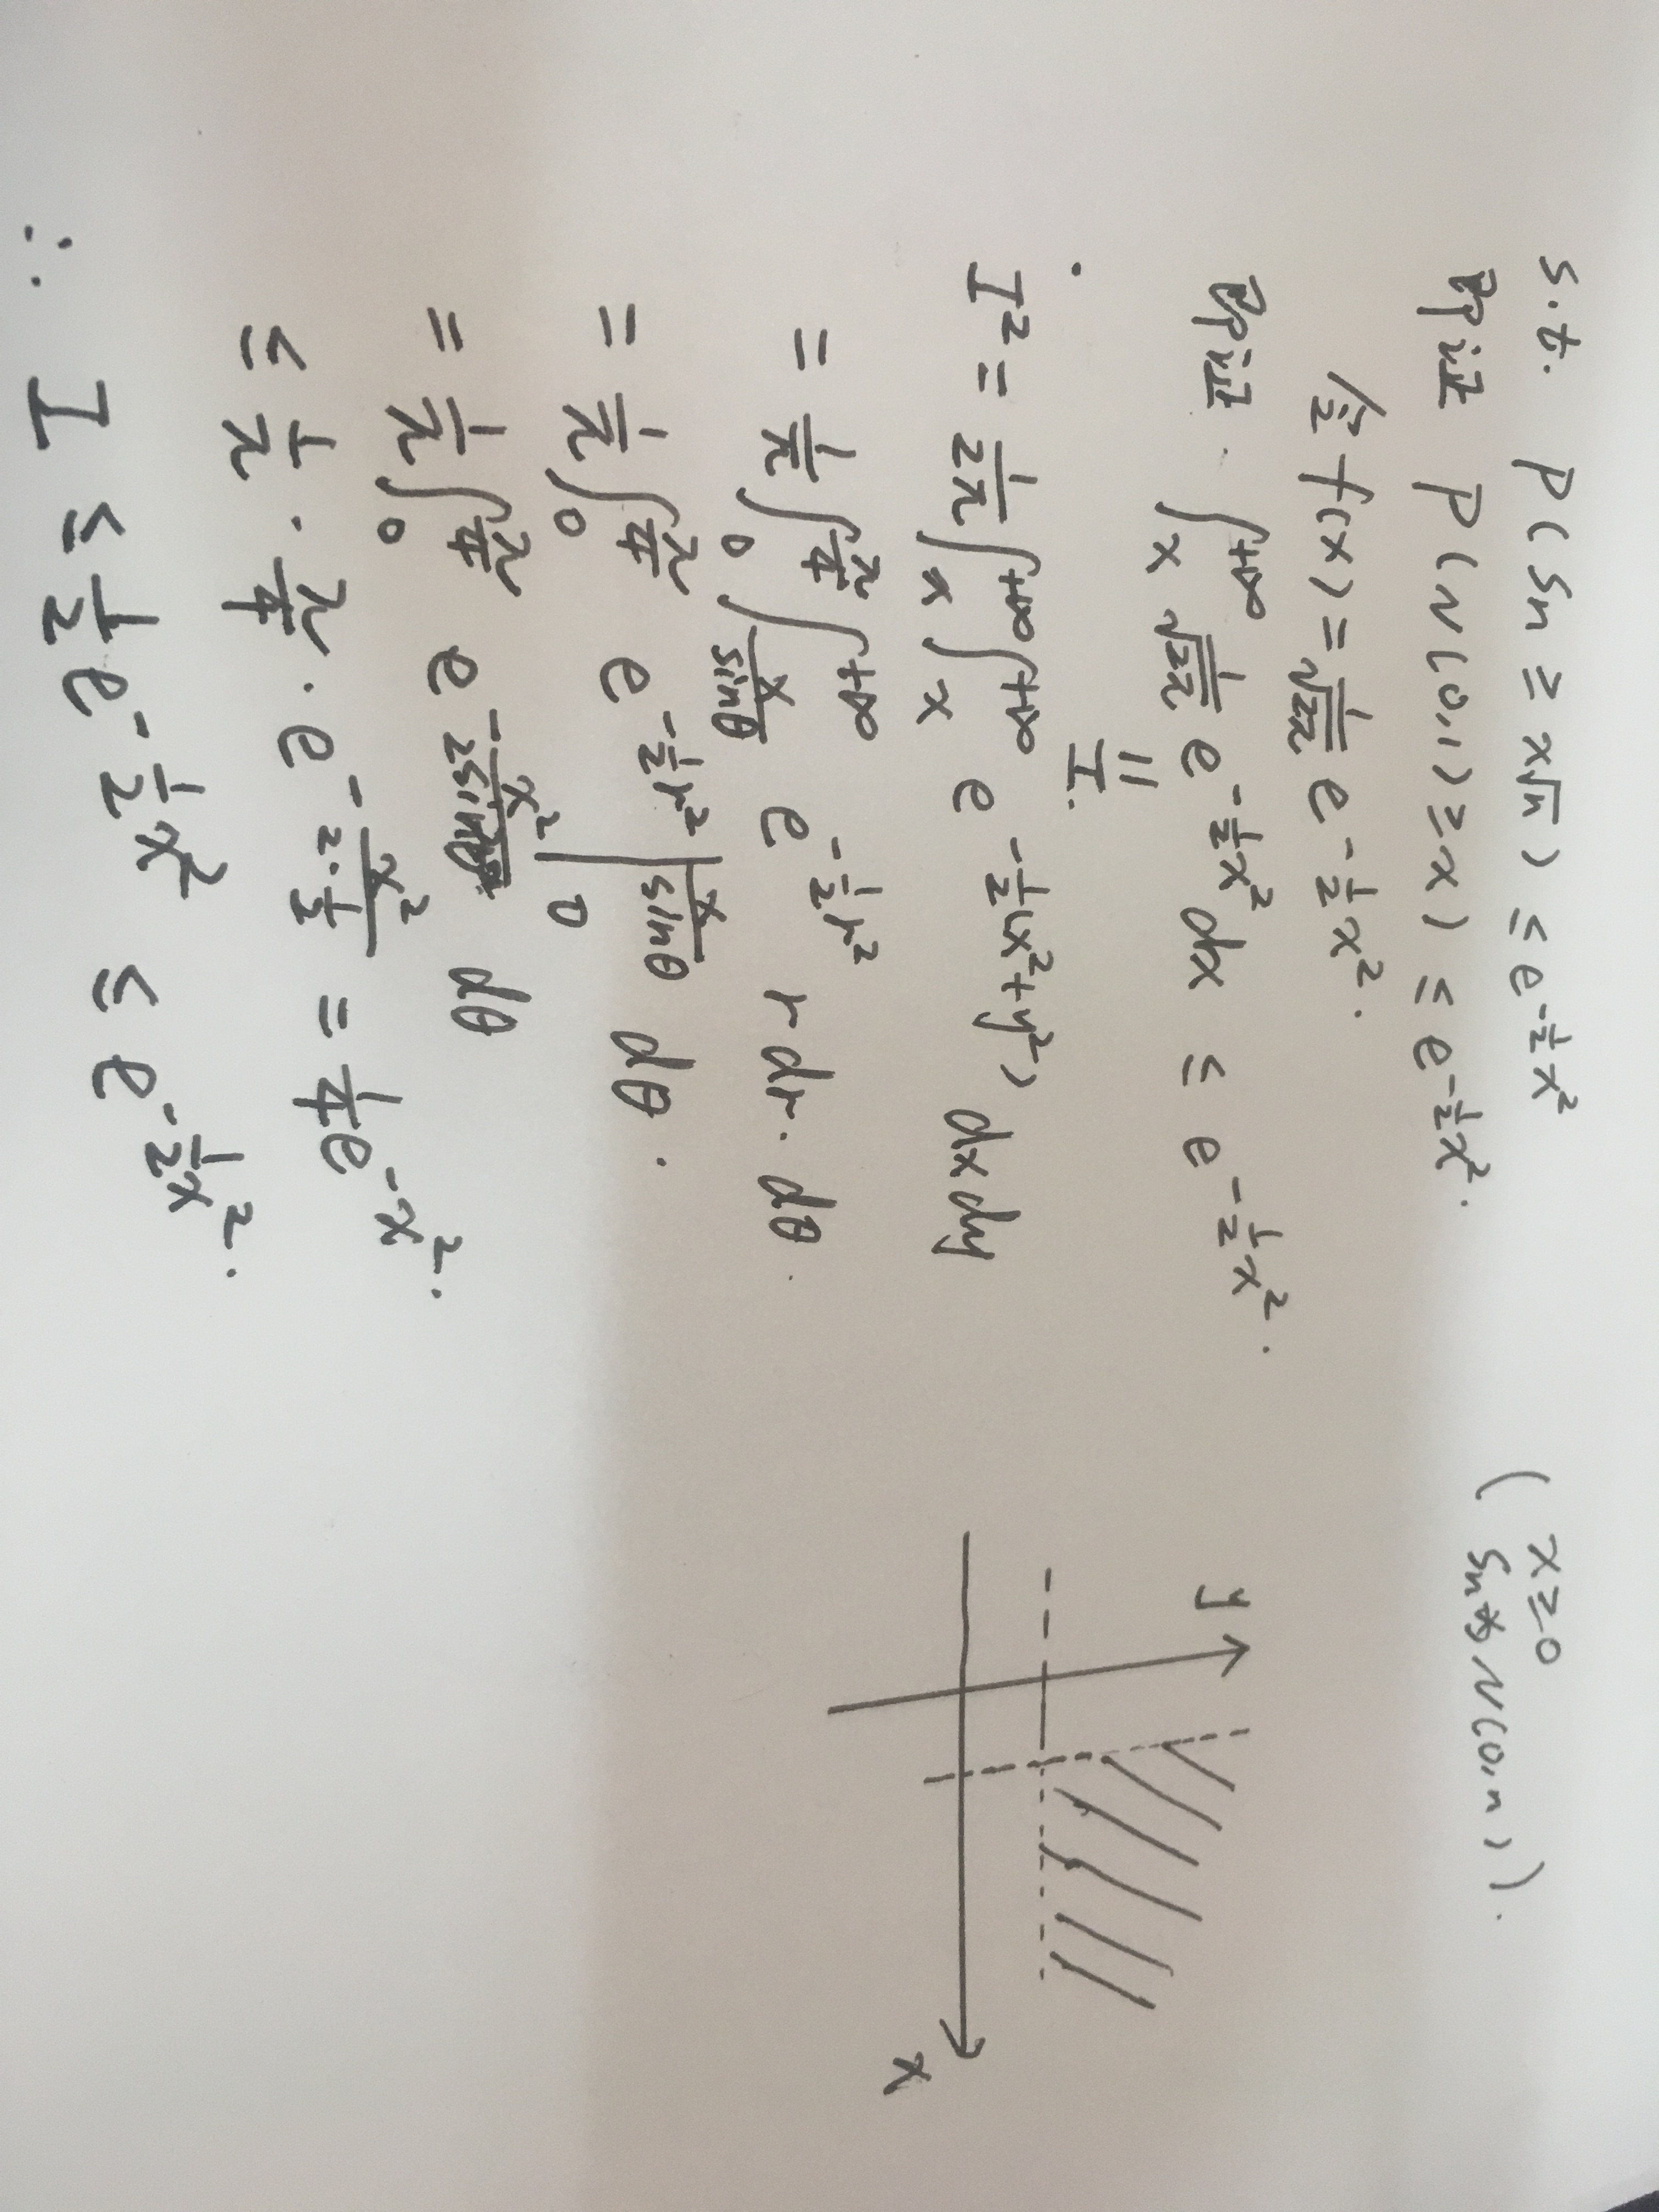 s.t. P(Sn ≥ x√n) ≤ e^{-\frac{1}{2}x^2} (x≥0
即证 P(N(0,1) ≥ x) ≤ e^{-\frac{1}{2}x^2}. Sn N(0,n)).
令 f(x) = \frac{1}{\sqrt{2π}} e^{-\frac{1}{2}x^2}.
即证. ∫_x^{+∞} \frac{1}{\sqrt{2π}} e^{-\frac{1}{2}x^2} dx ≤ e^{-\frac{1}{2}x^2}.
॥
I.
I^2 = \frac{1}{2π} ∫_x^{+∞} ∫_x^{+∞} e^{-\frac{1}{2}(x^2+y^2)} dxdy
= \frac{1}{π} ∫_0^{\frac{π}{4}} ∫_{\frac{x}{sinθ}}^{+∞} e^{-\frac{1}{2}r^2} r dr. dθ.
= \frac{1}{π} ∫_0^{\frac{π}{4}} e^{-\frac{1}{2}r^2} |_0^{\frac{x}{sinθ}} dθ.
= \frac{1}{π} ∫_0^{\frac{π}{4}} e^{-\frac{x^2}{2sin}} dθ
≤ \frac{1}{π} · \frac{π}{4} · e^{-\frac{x^2}{2·\frac{1}{2}}} = \frac{1}{4} e^{-x^2}.
∴ I ≤ \frac{1}{2} e^{-\frac{1}{2}x^2} ≤ e^{-\frac{1}{2}x^2}.
y
x